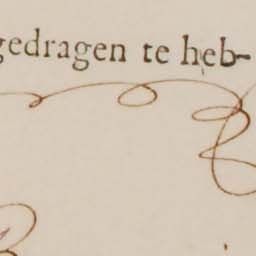 gedragen te heb-